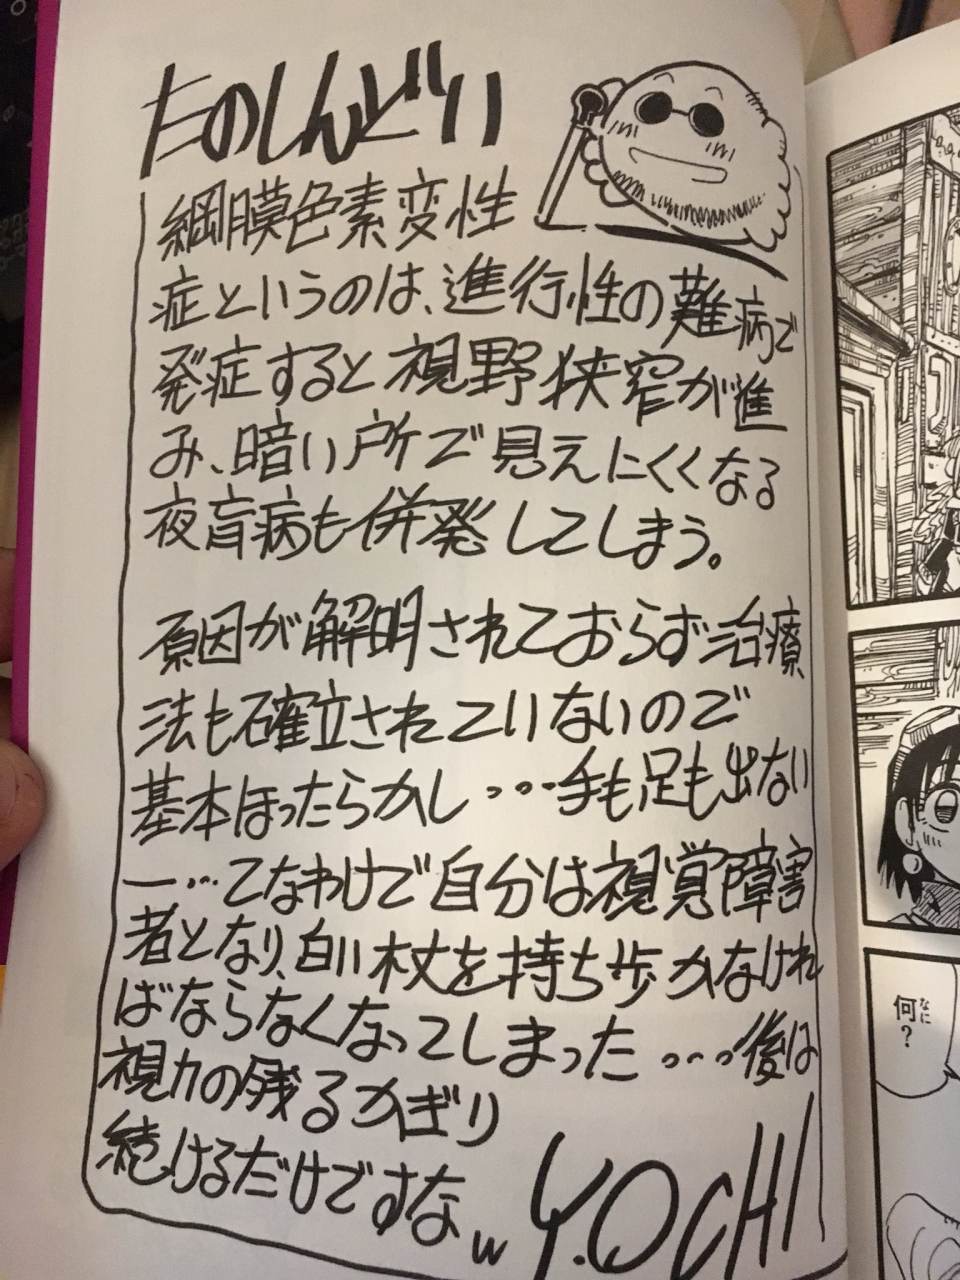 たのしんどい
網膜色素変性
症というのは、進行性の難病で
発症すると視野狭窄が進
み、暗い所で見えにくくなる
夜盲病も併発してしまう。
原因が解明されておらず治療
法も確立されていないので
基本ほったらかし・・・手も足も出ない
ー・・・てなわけで自分は視覚障害
者となり、白い杖を持ち歩かなけれ
ばならなくなってしまった・・・後は
視力の残るかぎり
続けるだけですなw
Y.OCHI
何?
なに